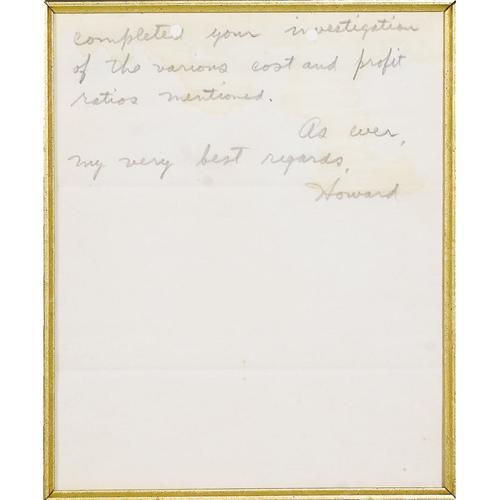 completed your investigation
of the various cost and profit
ratios mentioned.
As ever,
my very best regards,
Howard